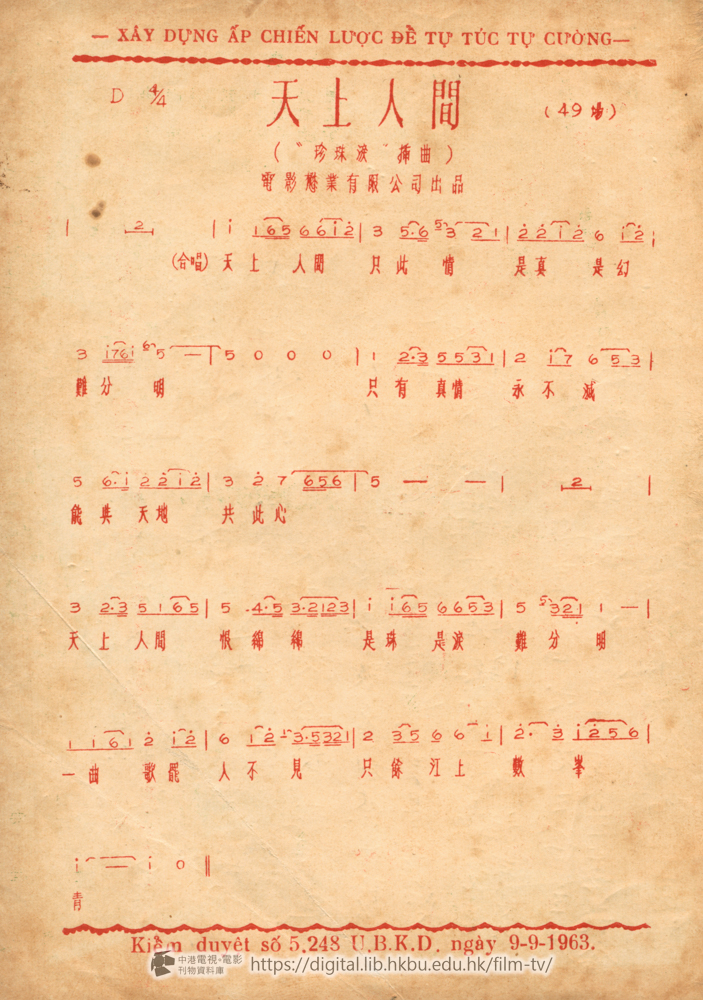 — XÂY DỰNG ẤP CHIẾN LƯỢC ĐỂ TỰ TÚC TỰ CƯỜNG—
D 4/4 天上人間 (49場)
(“珍珠淚”插曲)
電影懋業有限公司出品
| 2 | i 165 66i2 | 3 5·6 53 21 | 22i2 6 i2 |
(合唱) 天上人間 只此情 是真 是幻
3 i76i 65 5 — | 5 0 0 0 | 1 2·3 5531 | 2 i7 6 53 |
難分明 只有真情 永不滅
5 6·i 22i2 | 3 2 7 656 | 5 — — — | 2 |
能與天地 共此心
3 2·3 5 165 | 5 ·4·5 3·2123 | i i65 6653 | 5 5321 1 — |
天上人間 恨綿綿 是珠是淚 難分明
1 i6i 2 i2 | 6 i2 3·5321 | 2 35 6 6 i | 2· 3 i256 |
一曲歌罷 人不見 只餘江上 數峯
i — i 0 ||
青
Kiểm duyệt số 5.248 U.B.K.D. ngày 9-9-1963.
中港電視·電影
刊物資料庫
https://digital.lib.hkbu.edu.hk/film-tv/